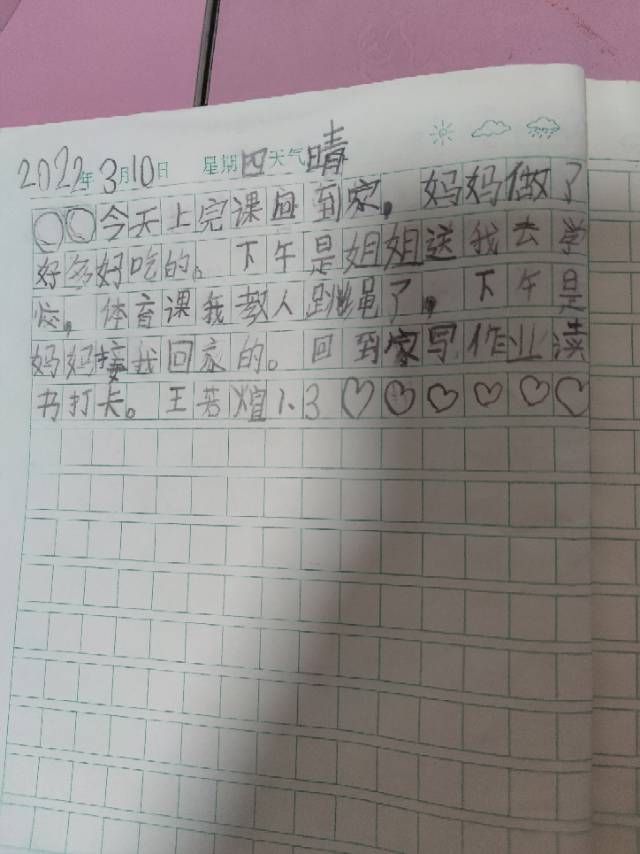 2022年3月10日 星期四天气晴
○○今天上完课回到家，妈妈做了
好多好吃的。下午是姐姐送我去学
校，体育课我教人跳绳了，下午是
妈妈接我回家的。回到家写作业读
书打卡。王若煊1、3♡♡♡♡♡♡